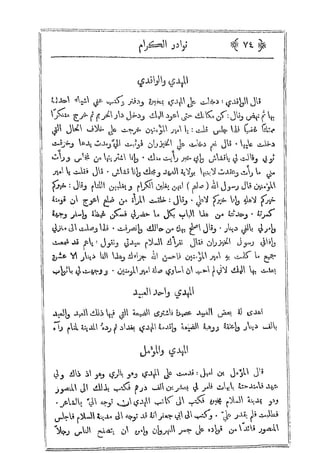 ٧٤ نوادر الكرام
المهدي والواقدي
قال الواقدي: دخلت على المهدي بمحبرة ودفتر وكتب عني اشياء احدثه
بها ثم نهض وقال: كن مكانك حتى اعود اليك ودخل دار الحريم ثم خرج متنكرًا
ممتلئًا غضبًا فلما جلس قلت: يا امير المؤمنين خرجت على خلاف الحال التي
دخلت عليها. قال نعم دخلت على الخيزران فوثبت اليّ ومدت يدها وخرقت
ثوبي وقالت لي يا قشاش وايّ خير رأيت منك. وانا اشتريتها من نخاس ورأت
مني ما رأت وعقدت لابنيها بولاية العهد ويحك وانا قشاش. قال فقلت يا امير
المؤمنين قال رسول الله (صلعم) انهن يغلبن الكرام ويغلبهن اللئام وقال: خيركم
خيركم لاهله وانا خيركم لاهلي. وقال: خلقت المرأة من ضلع اعوج ان قومته
كسرته. وحدثته من هذا الباب بكل ما حضرني فسكن غيظه واسفر وجهه
وامر لي بالفي دينار. وقال اصلح بهذه من حالك وانصرفت. فلما وصلت الى منزلي
وافاني رسول الخيزران فقال تقرأك السلام سيدتي وتقول. يا عم قد سمعت
جميع ما كلمت به امير المؤمنين فاحسن الله جزاءك وهذا الفا دينار الا عشرة
بعثت بها اليك لاني لم احب ان اساوي صلة امير المؤمنين. ووجهت لي باثواب
المهدي واحد العبيد
اهدى له بعض العبيد
بالف دينار واعتقه ووهبه الضيعة
المهدي والمؤمل
قال المؤمل بن اميل: قدمت على المهدي وهو بالري وهو اذ ذاك ولي
عهد فامتدحته بابيات فامر لي بعشرين الف درهم فكتب بذلك الى المنصور
وهو بمدينة السلام فكتب الى كاتب المهدي ان توجه اليّ بالشاعر.
فطلبت فلم يقدر عليّ. وكتب الى ابي جعفر انه قد توجه الى مدينة السلام فاجلس
المنصور قائدًا من قواده على جسر النهروان وامره ان يتصفح الناس رجلًا